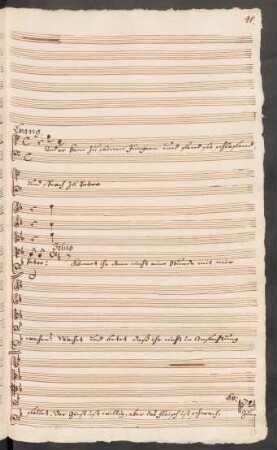 Evang.
Und er kam zu seinen Jüngern und fand sie schlafend
und sprach zu Petro
Jesus
Könnet ihr denn nicht eine Stunde mit mir
wachen? Wachet und betet daß ihr nicht in Anfechtung
fallet. Der Geist ist willig, aber das Fleisch ist schwach.